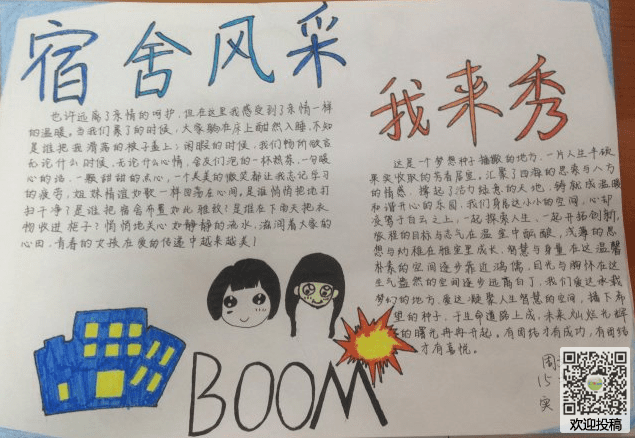 宿舍风采
我来秀
也许远离了亲情的呵护,但在这里我感受到了亲情一样
的温暖。当我们累了的时候,大家躺在床上酣然入睡,不知
是谁把我滑落的被子盖上;闲暇的时候,我们畅所欲言
无论什么时候,无论什么心情,舍友们泡的一杯热茶,一句暖
心的话,一颗甜甜的点心,一个美美的微笑都让我忘记学习
的疲劳,姐妹情谊如歌一样回荡在心间,是谁悄悄把地打
扫干净了是谁把宿舍布置如此雅致?是谁在下雨天把衣
物收进柜子?悄悄地关心如静静的流水,滋润着大家的
心田,青春的女孩在爱的传递中越来越美!
这是个梦想种子播撒的地方,一片人生丰硕
果实收取的秀看居室,汇聚了四海的思索与八方
的情感,撑起了活力绿意的天地,铸就成温暖
和谐开心的乐园,我们身居这小小的空间,心却
变驾于白云之上,一起探索人生,一起开拓创新,
旅程的目标与志气在温室中酝酿,浅薄的思
想与幼稚在雅室里成长,智慧与身量在这温馨
朴素的空间逐步靠近鸿儒,目光与胸怀在这
生气盎然的空间逐步远离自己,我们爱这承载
梦幻的地方,爱这凝聚人生智慧的空间,播下希
望的种子,于生命道路上成,未来灿烂光辉
的曙光冉冉升起。有团结才有成功,有团结
才有喜悦。
BOOM
周
15
实
欢迎投稿